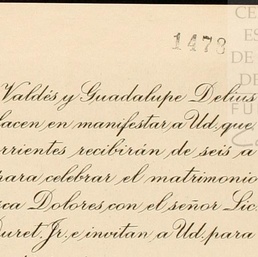 1473
Valdés y Guadalupe Delius
lacen en manifestar a Ud. que
rrientes recibirán de seis a
para celebrar el matrimonio
ca Dolores, con el señor Lic.
Duret, Jr. e invitan a Ud. para
CE
ES
DE
DE
FU